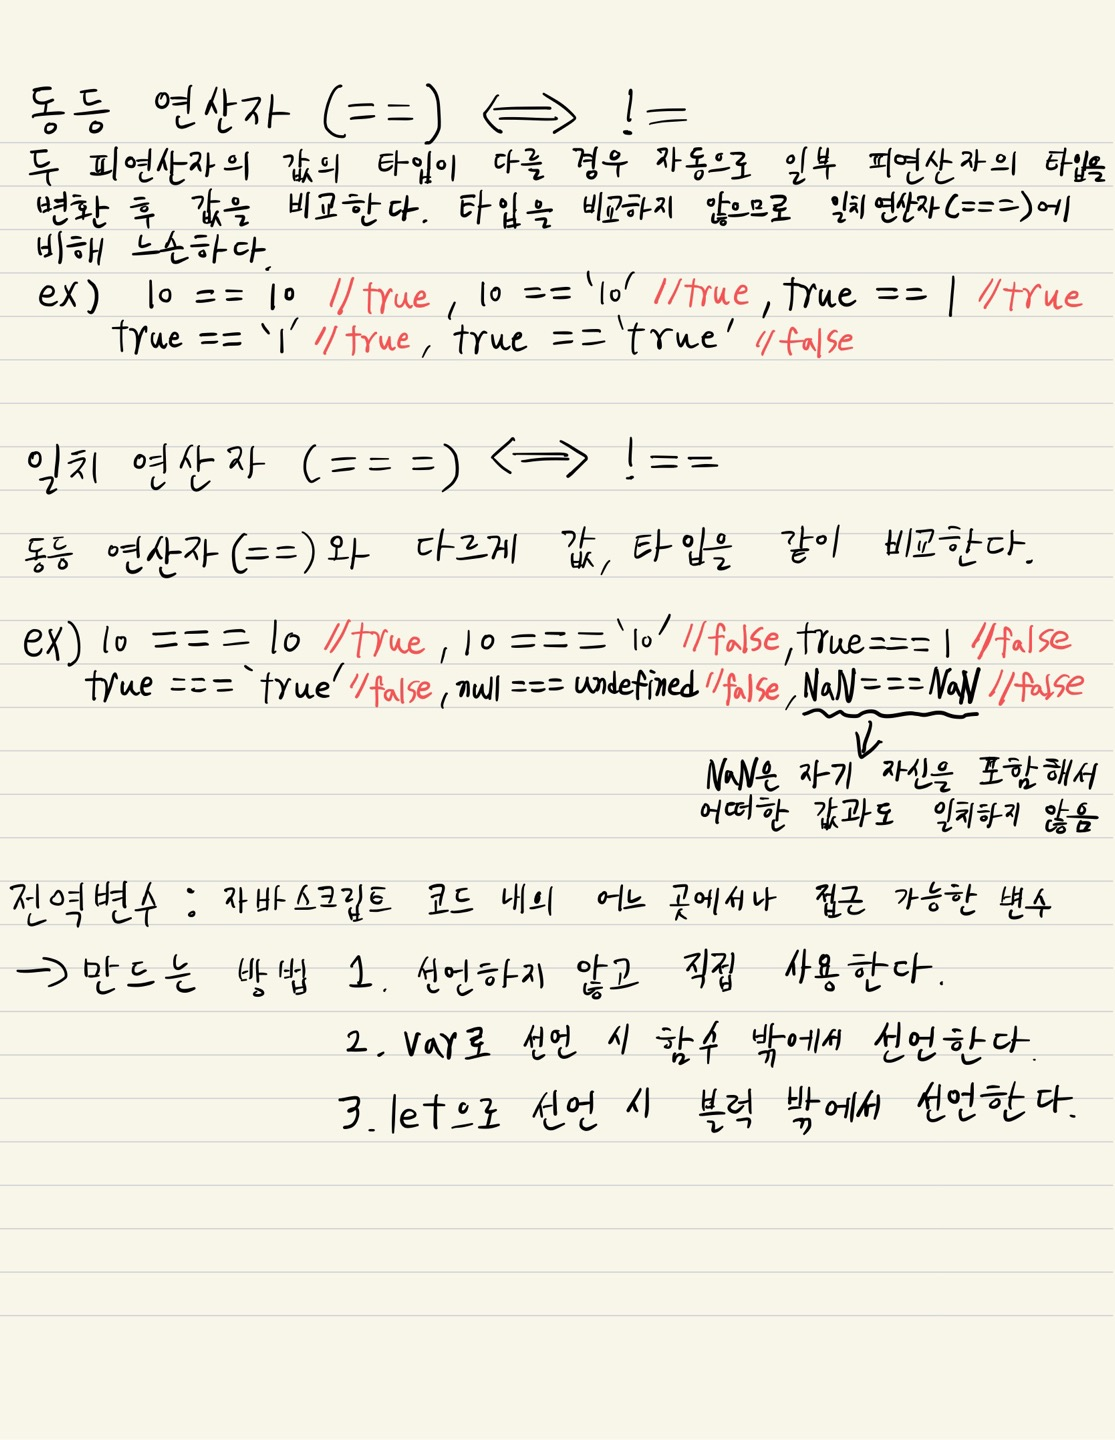 동등 연산자 (==) ⟺ !=
두 피연산자의 값의 타입이 다를 경우 자동으로 일부 피연산자의 타입을
변환 후 값을 비교한다. 타입을 비교하지 않으므로 일치 연산자(===)에
비해 느슨하다.
ex) 10 == 10 //true, 10 == '10' //true, true == 1 //true
true == '1' //true, true == 'true' //false
일치 연산자 (===) ⟺ !==
동등 연산자(==)와 다르게 값, 타입을 같이 비교한다.
ex) 10 === 10 //true, 10 === '10' //false, true === 1 //false
true === 'true' //false, null === undefined //false, NaN === NaN //false
↓
NaN은 자기 자신을 포함해서
어떠한 값과도 일치하지 않음
전역변수 : 자바스크립트 코드 내의 어느 곳에서나 접근 가능한 변수
→ 만드는 방법 1. 선언하지 않고 직접 사용한다.
2. var로 선언 시 함수 밖에서 선언한다.
3. let으로 선언 시 블럭 밖에서 선언한다.